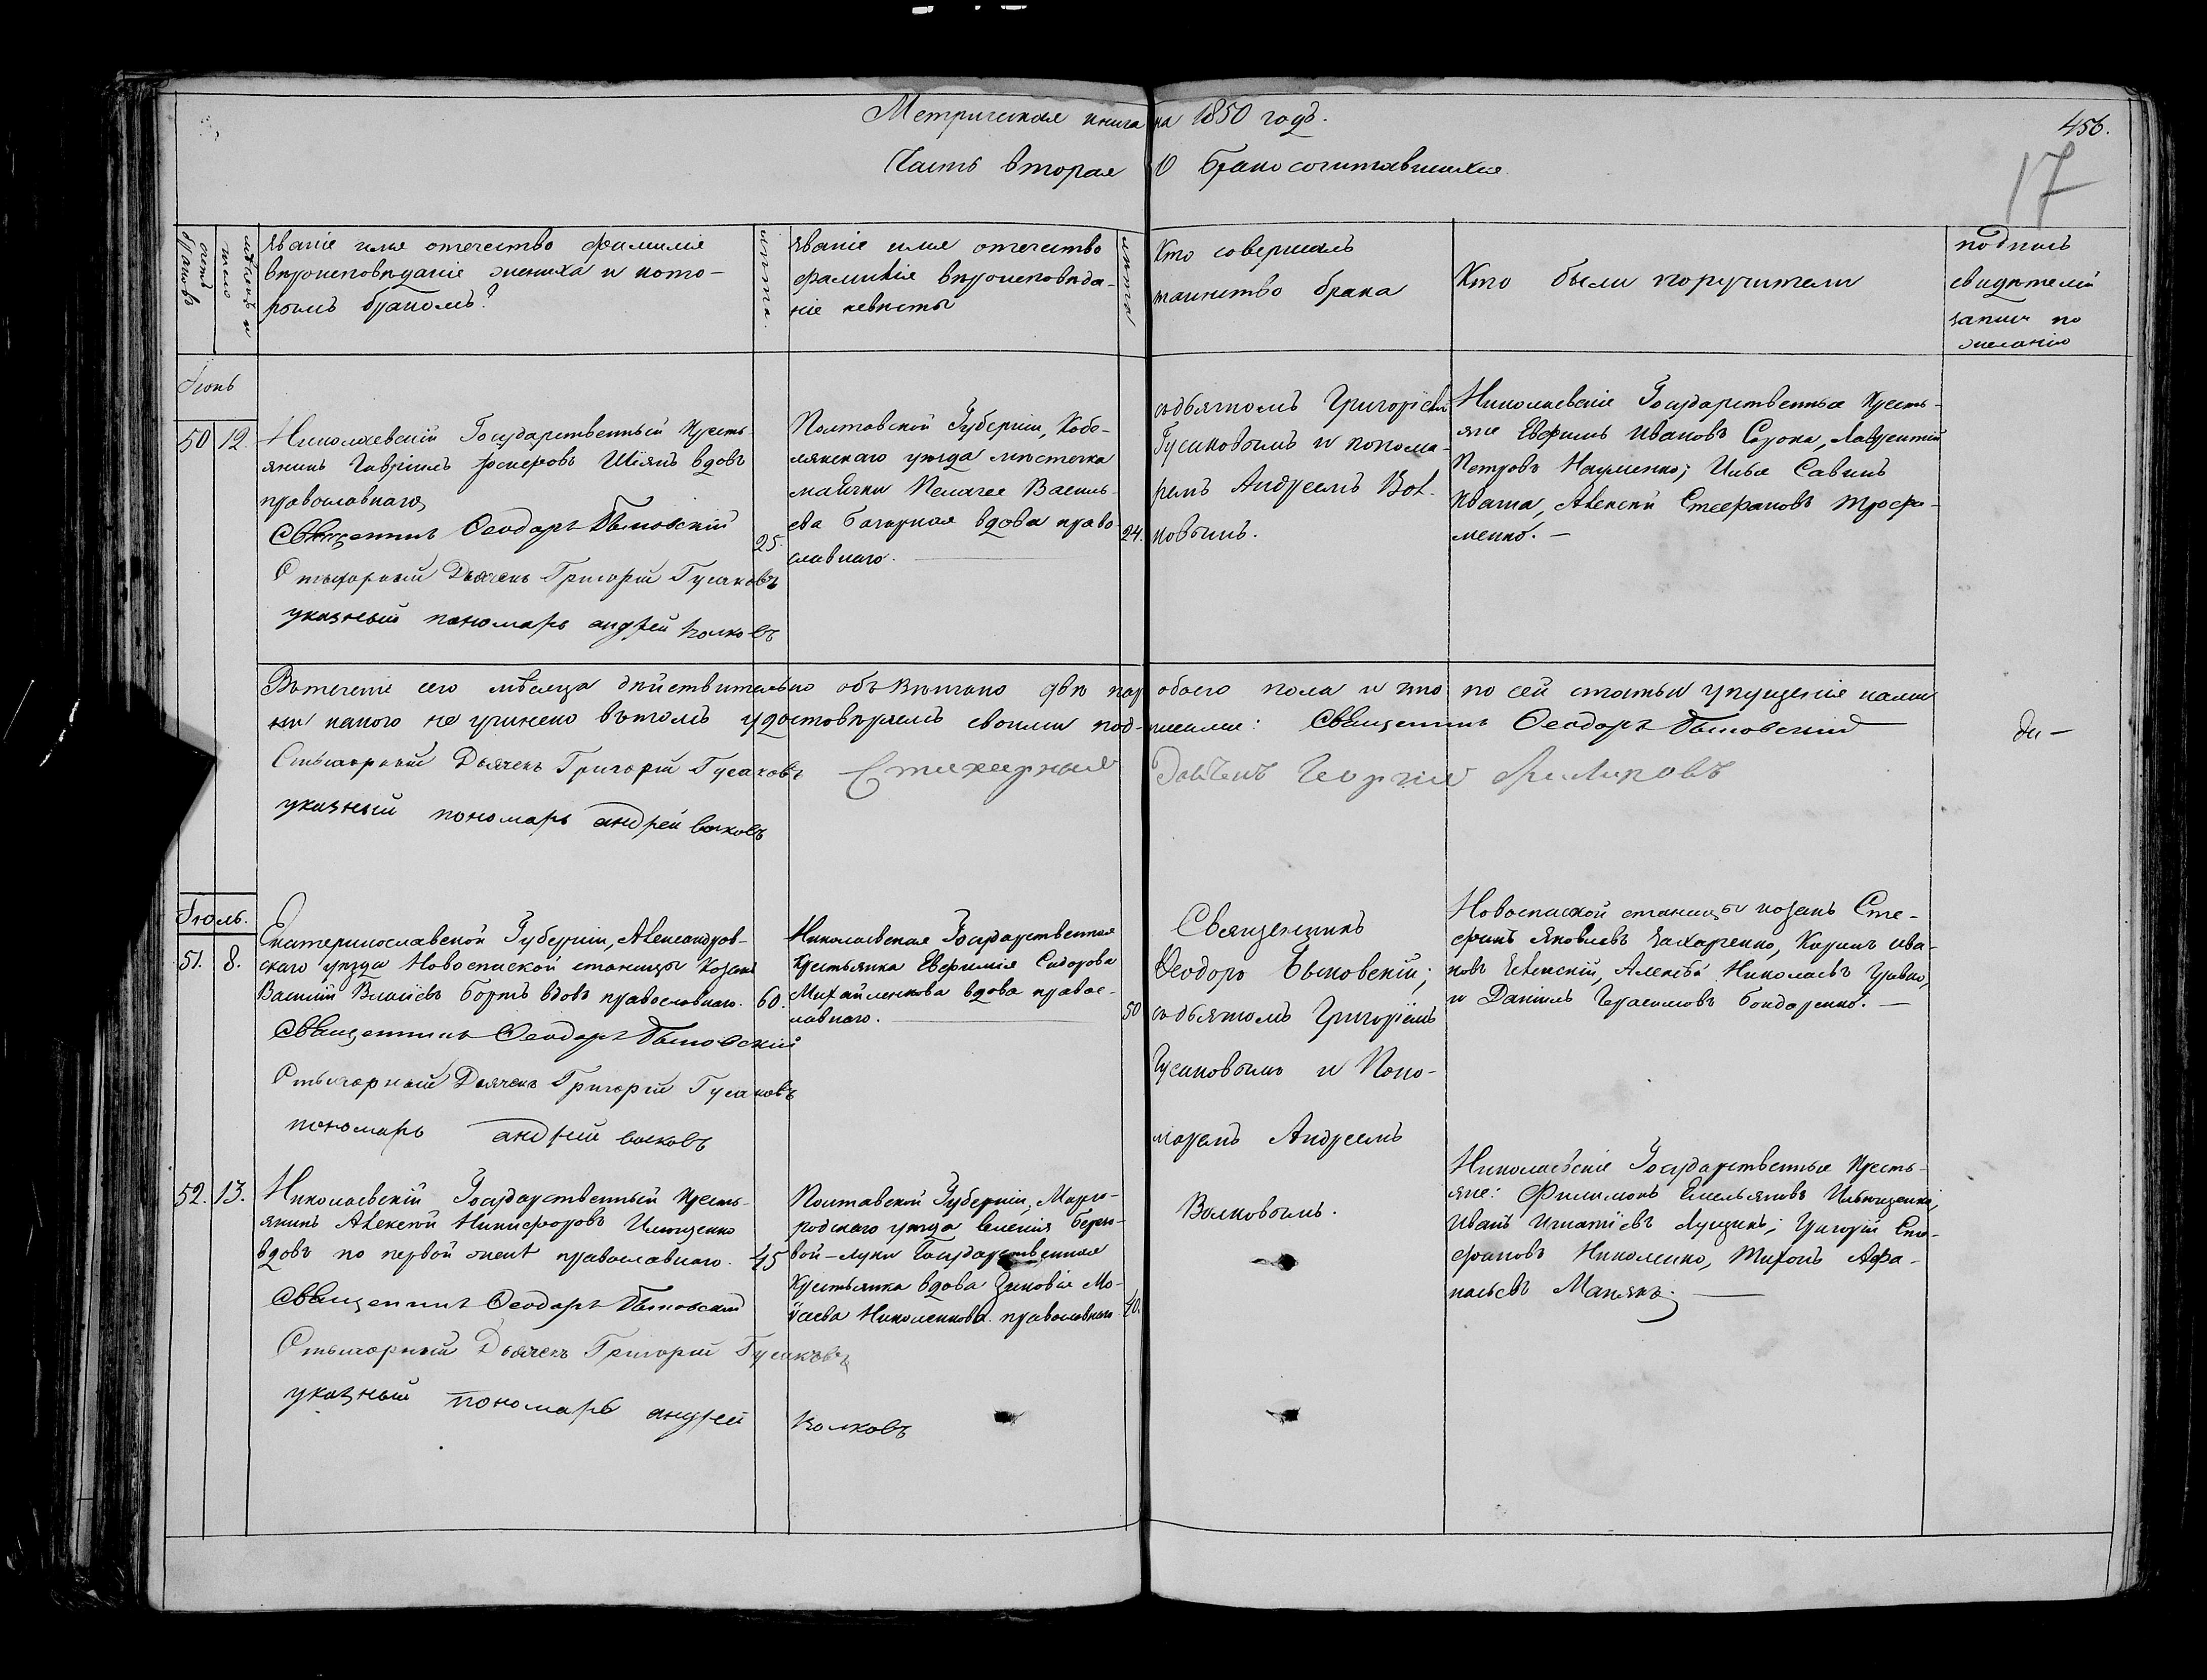 Метрическая книга на 1850 годъ.
456.
Часть вторая О бракосочитавшихся
17
счетъ браковъ
мѣсяцъ и число
званіе имя отечество фамилія
вѣроисповѣданіе жениха и кото-
рымъ бракомъ?
лѣта.
званіе имя отечество
фамилія вѣроисповѣда-
ніе невѣсты
лѣта
Кто совершалъ
таинство брака
Кто были поручители
подпись
свидѣтелей
записи по
желанію
Іюнь
50 12.
Николаевскій Государственный кресть-
янинъ Гавріилъ Шіянъ вдовъ
православнаго
25.
Священникъ Ѳеодоръ Быковскій
Стыхарный Дьячекъ Григорій Гусаковъ
указный пономарь андрей волковъ
Полтавской Губерніи, Кобе-
лякскаго уѣзда мѣстечка
маячки Пелагея Василь-
ева вдова право-
славнаго.
24.
съ дьячкомъ Григоріемъ
Гусаковымъ и понома-
ремъ Андреемъ Вол-
ковымъ.
Николаевскіе Государственные кресть-
яне Евфимъ Ивановъ Сорока, Лаврентій
Петровъ Науменко; Илья Савинъ
Кваша, Алексѣй Стефановъ Трофи-
менко. —
Въ теченіе сего мѣсяца дѣйствительно обвѣнчано двѣ пары обоего пола и что по сей статьи упущенія нами
ни какого не учинено въ томъ удостовѣряемъ своими под-писами: Священникъ Ѳеодоръ Быковскій
Стыхарный Дьячекъ Григорій Гусаковъ Стихарный Дьячекъ Георгій Филиповъ
указный пономарь андрей волковъ
Іюль.
51. 8.
Екатеринославской Губерніи, Александров-
скаго уѣзда Новоспаской станицы козакъ
Василій Власіевъ Бортъ вдовъ православнаго. 60.
Священникъ Ѳеодоръ Быковскій
Стыхарный Дьячекъ Григорій Гусаковъ
пономарь андрей волковъ
Николаевская Государственная
Крестьянка Евфимія Сидорова
Михайленкова вдова правос-
лавнаго.
50
Священникъ
Ѳеодоръ Быковскій;
съ дьячкомъ Григоріемъ
Гусаковымъ и Поно-
маремъ Андреемъ
Волковымъ.
Новоспаской станицы козакъ Сте-
фанъ Яковлевъ Захаренко, ива-
новъ Алексѣй Николаевъ
и Даніилъ Герасимовъ Бондаренко. —
52. 13.
Николаевскій Государственный кресть-
янинъ Алексѣй Никифоровъ Ильющенко
вдовъ по первой женѣ православнаго. 45
Священникъ Ѳеодоръ Быковскій
Стыхарный Дьячекъ Григорій Гусаковъ
указный пономарь андрей волковъ
Полтавской Губерніи, Мирго-
родскаго уѣзда селенія Берго-
вой-луки Государственная
Крестьянка вдова Зиновія Мо-
исѣева Николенкова православнаго
40.
Николаевскіе Государственные кресть-
яне: Филимонъ Емельяновъ Ильющенко,
Иванъ Игнатіевъ Лущикъ; Григорій Сте-
фановъ Николенко, Тихонъ Афа-
насьевъ Манякъ. —